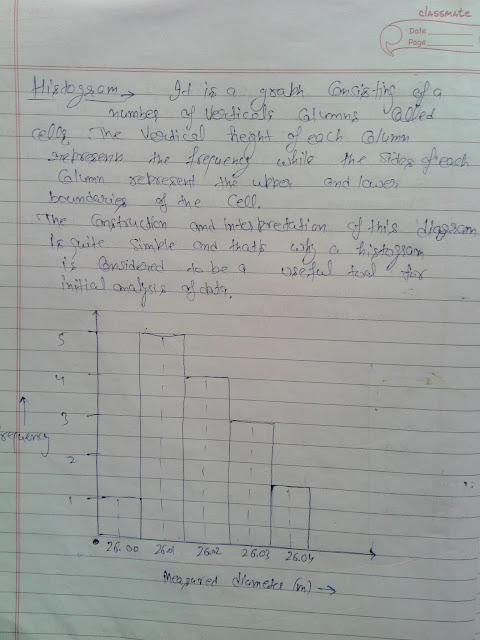 classmate
Date
Page
Histogram → It is a graph Consisting of a
number of verticals Columns Called
Cells. The vertical height of each Column
represents the frequency while the sides of each
Column represent the upper and lower
boundaries of the Cell.
The Construction and interpretation of this diagram
is quite simple and that's why a histogram
is Considered to be a useful tool for
initial analysis of data.
5
4
3
2
1
frequency
0
26.00 26.01 26.02 26.03 26.04
Measured diameter (m) →